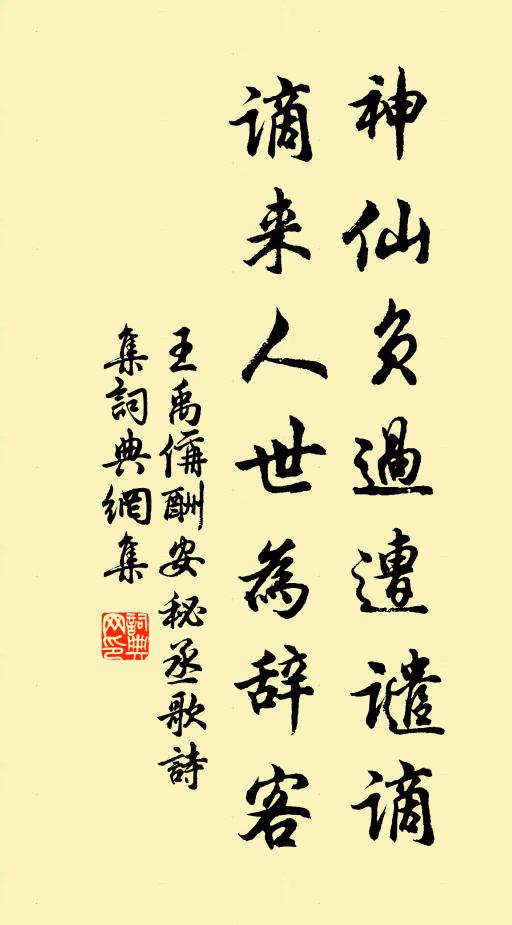 神仙负過遭譴謫
謫来人世為辞客
王禹偁酬安秘丞歌詩
集詞典網集
詞典
网印